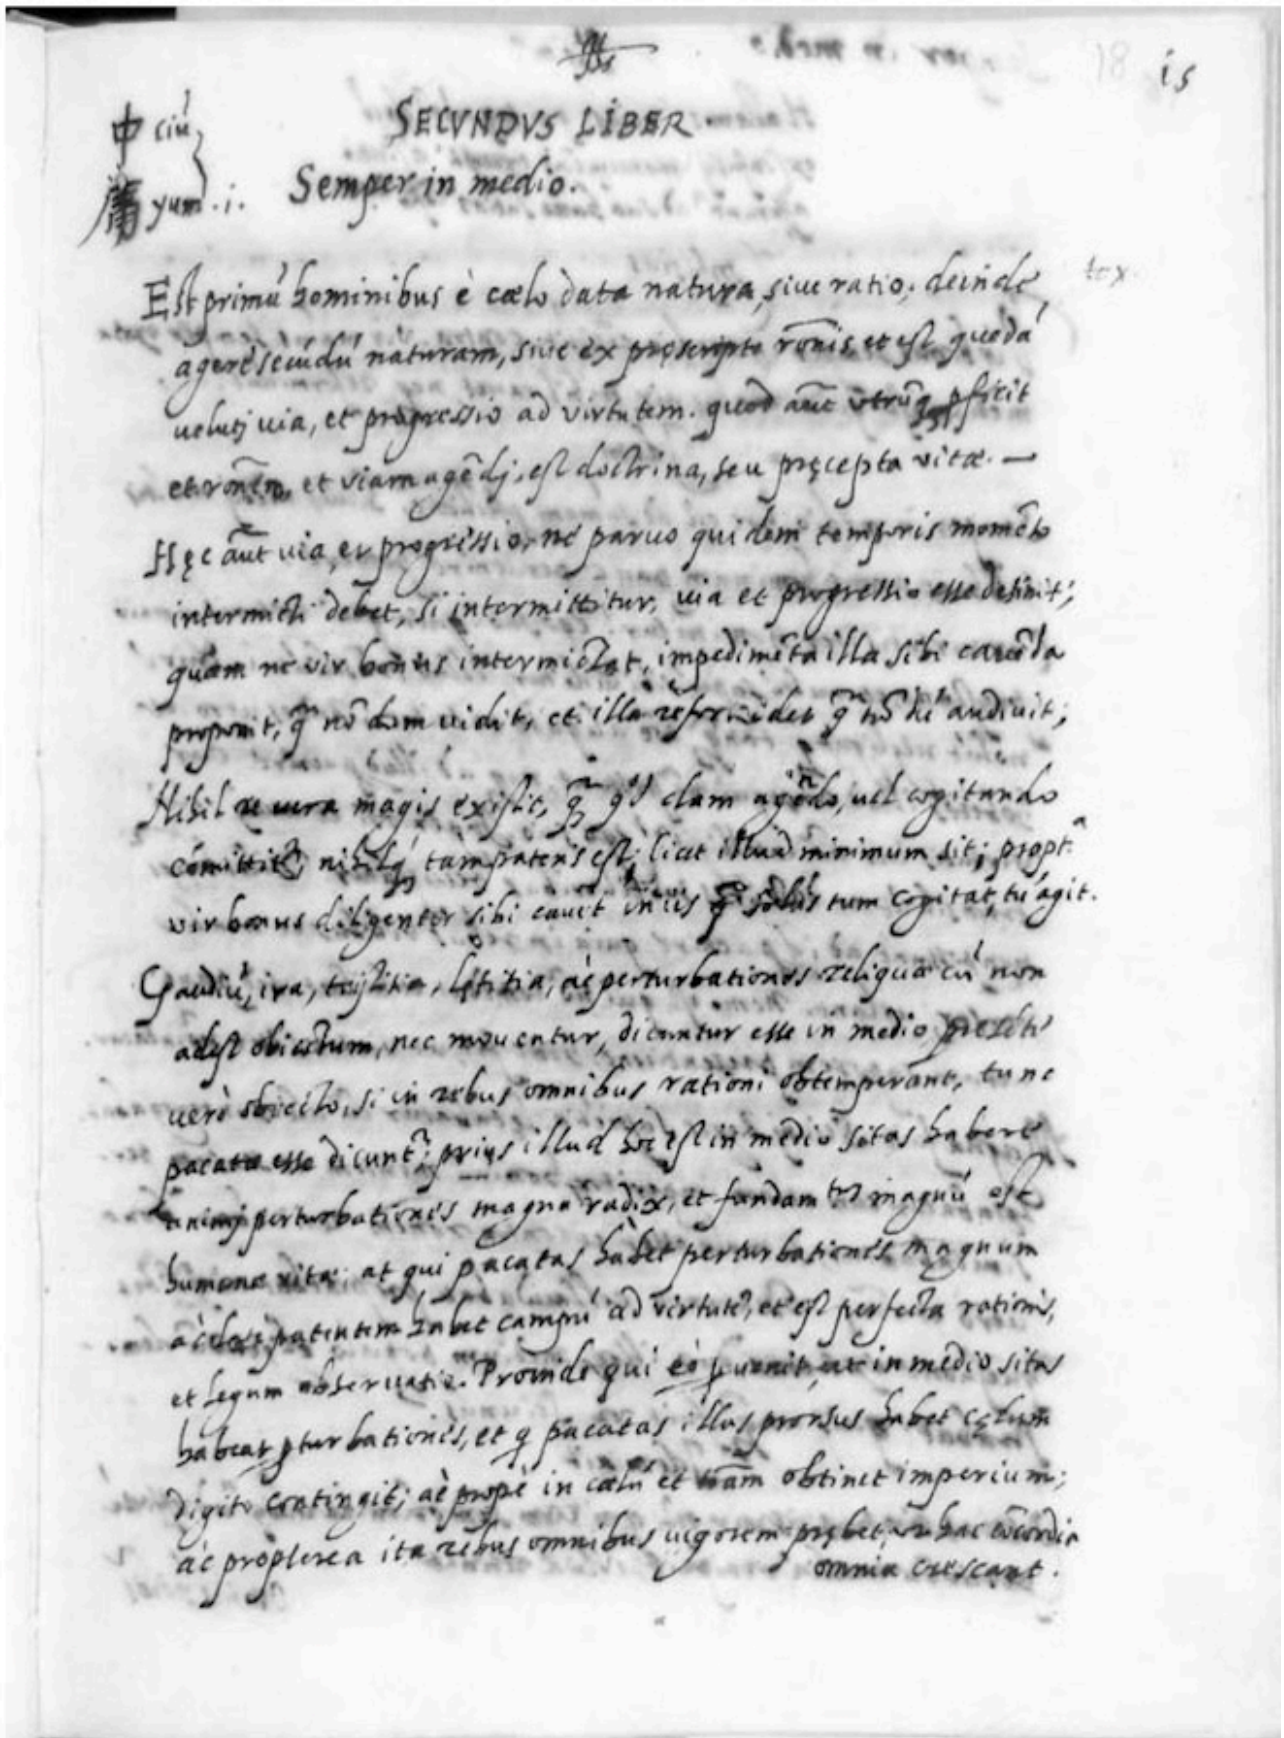 is
SECVNDVS LIBER
中 ciú
庸 yum .i. Semper in medio.
Est primú hominibus è cælo data natura, siue ratio; deinde
agere secúdú naturam, siue ex pręscripto rōnis, et est quędá
velutj via, et progressio ad virtutem. quod aūt vtrūq; pficit
et rōnem, et viam agēdj, est doctrina, seu pręcepta vitæ. —
Hęc aūt via, et progressio, ne paruo quidem temporis momēto
intermitti debet, si intermittitur, via et progressio esse desinit;
quam ne vir bonus intermittat, impedimēta illa sibi cauēda
proponit, q̄ nōdum vidit, et illa reformidet q̄ nōdú audiuit;
Nihil re uera magis existit, q̄ qd clam agēdo, uel cogitando
cōmittit, nihilq; tam patens est, licet illud minimum sit; propt.ª
vir bonus diligenter sibi cauet in iis q̄ solus tum cogitat, tú agit.
Gaudiú, ira, tristitia, lętitia, ac perturbationes reliquæ cú non
adest obiectum, nec mouentur, dicuntur esse in medio presēte
uerò obiecto, si in rebus omnibus rationi obtemperant, tunc
pacatæ esse dicunt.ᵣ prius illud hoc est in medio sitas habere
animj perturbationes magna radix, et fundam.tum magnú est
humanæ vitæ; at qui pacatas habet perturbationes magnum
ac patentem habet campú ad virtuté, et est perfecta rationis,
et legum obseruatio. Proinde qui eò puenit, ut in medio sitas
habeat pturbationes, et q pacatas illas prorsus habet cęlum
digito contingit; ac propè in cælú et trām obtinet imperium;
ac propterea ita rebus omnibus uigorem prębet, ut hac cōcordia
omnia crescant.